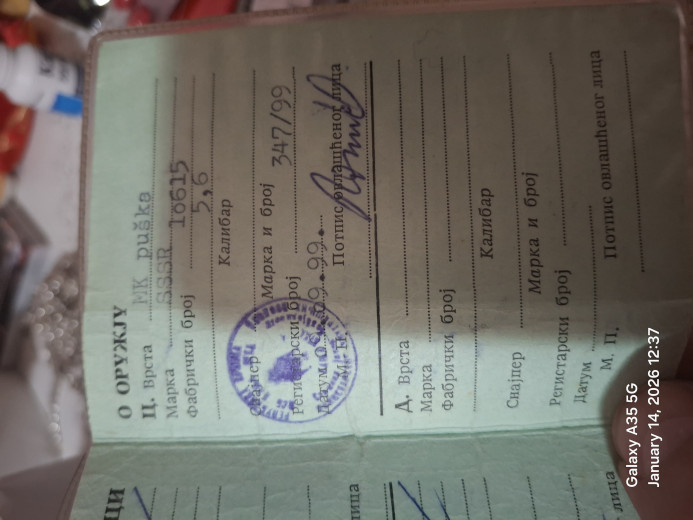 О ОРУЖЈУ
Ц. Врста MK puška
Марка SSSR
Фабрички број 10615
5,6
Калибар
Снајпер
Марка и број
Регистарски број 347/99
Датум 09.99.
М. П.
Потпис овлашћеног лица
Д. Врста
Марка
Фабрички број
Калибар
Снајпер
Марка и број
Регистарски број
Датум
М. П.
Потпис овлашћеног лица
ЦИ
лица
лица
Galaxy A35 5G
January 14, 2026 12:37